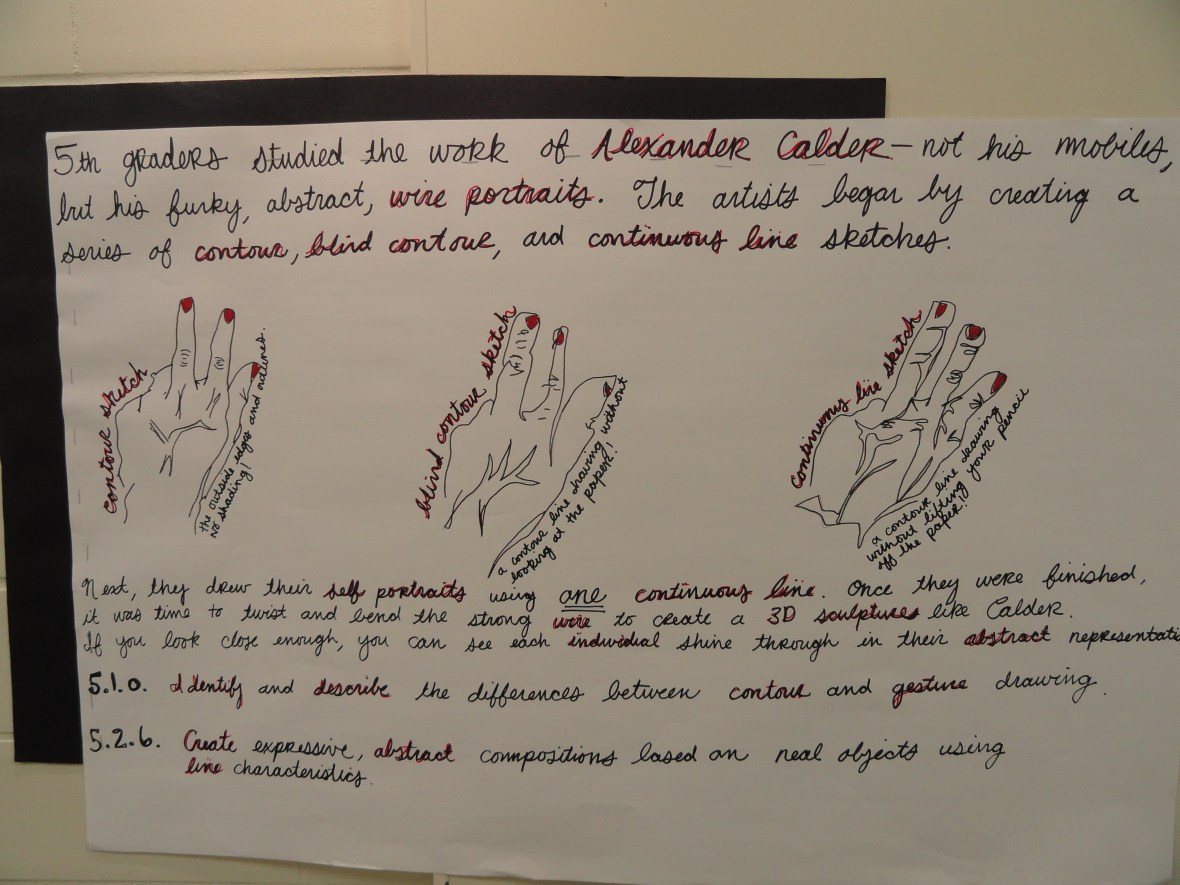 5th graders studied the work of Alexander Calder - not his mobiles,
but his funky, abstract, wire portraits. The artists began by creating a
series of contour, blind contour, and continuous line sketches.
contour sketch
the outside edges and outlines.
NO shading!
blind contour sketch
a contour line drawing without
looking at the paper!
continuous line sketch
a contour line drawing
without lifting your pencil
off the paper!
Next, they drew their self portraits using one continuous line. Once they were finished,
it was time to twist and bend the strong wire to create a 3D sculptures like Calder.
If you look close enough, you can see each individual shine through in their abstract representati
5.1.0. Identify and describe the differences between contour and gesture drawing.
5.2.6. Create expressive, abstract compositions based on real objects using
line characteristics.